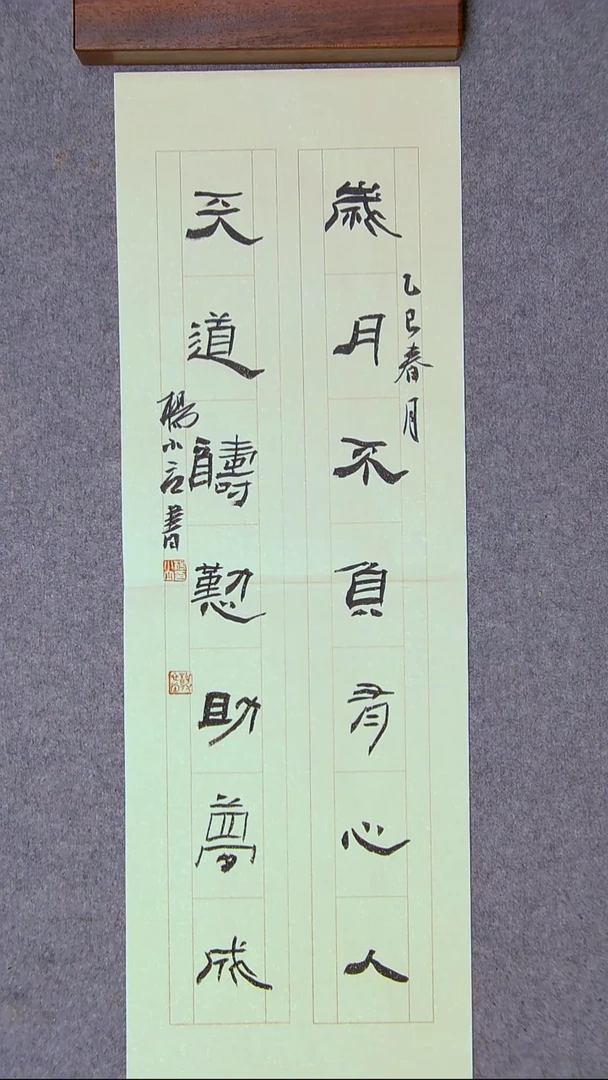 歲月不負有心人
乙巳春月
天道醻懃助夢成
楊小書